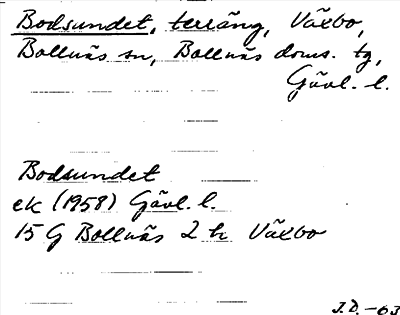 Bodsundet, terräng, Växbo,
Bollnäs sn, Bollnäs doms. tg,
Gävl. l.
Bodsundet
ek (1958) Gävl. l.
15 G Bollnäs 2 h Växbo
J.D. -63